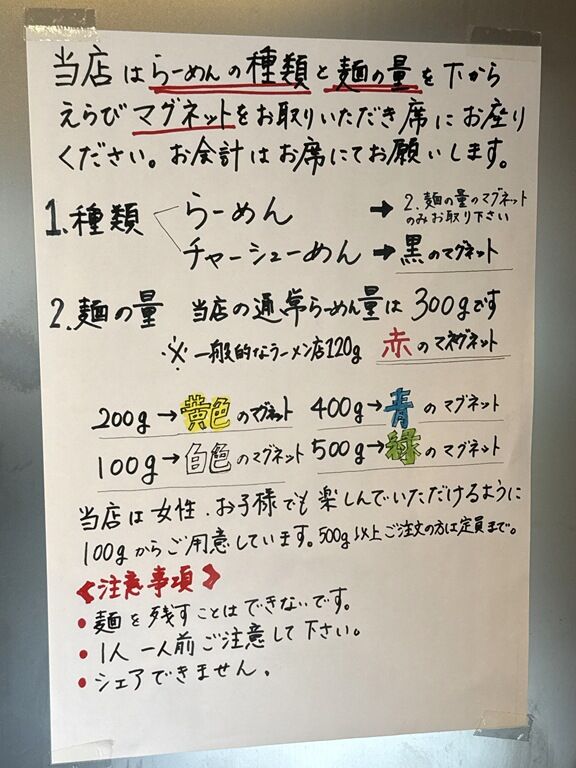 当店はらーめんの種類と麺の量を下から
えらびマグネットをお取りいただき席にお座り
ください。お会計はお席にてお願いします。
1.種類 らーめん → 2.麺の量のマグネットのみお取り下さい
チャーシューめん → 黒のマグネット
2.麺の量 当店の通常らーめん量は300gです
※一般的なラーメン店120g 赤のマグネット
200g→黄色のマグネット 400g→青のマグネット
100g→白色のマグネット 500g→緑のマグネット
当店は女性、お子様でも楽しんでいただけるように
100gからご用意しています。500g以上ご注文の方は定員まで。
《注意事項》
• 麺を残すことはできないです。
• 1人一人前ご注意して下さい。
• シェアできません。